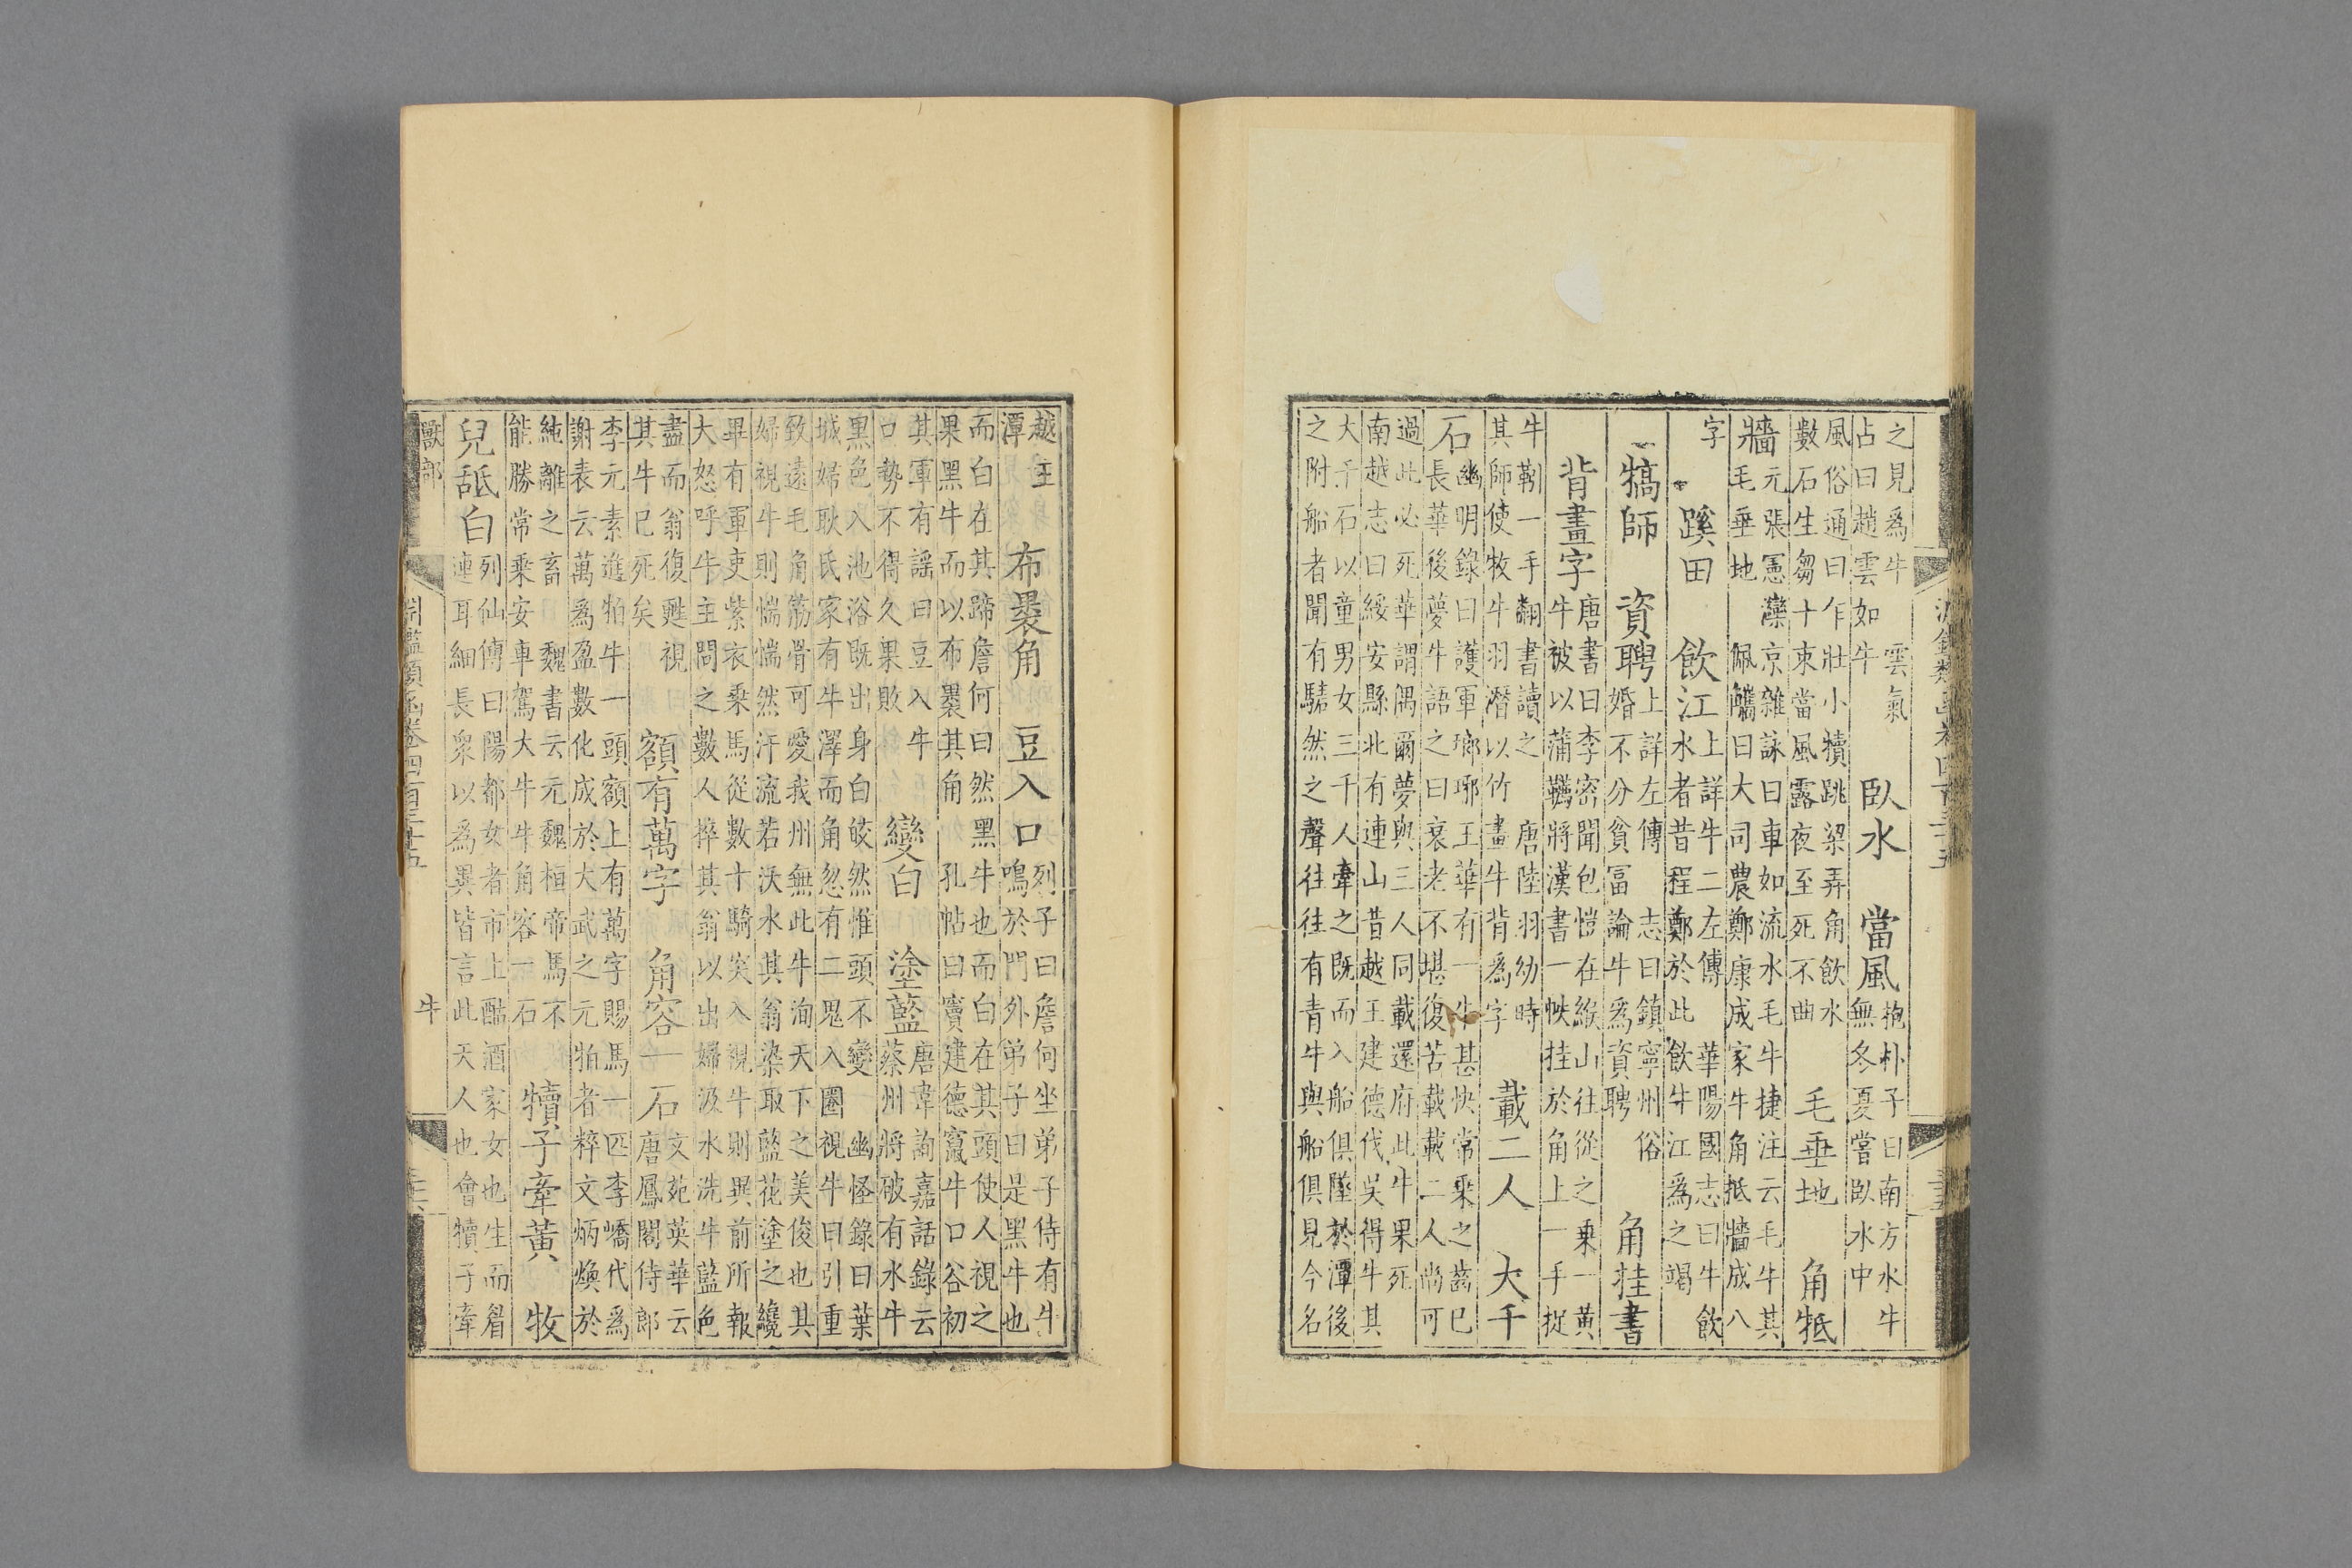 之見爲牛　雲氣
占曰趙雲如牛
臥水　當風
抱朴子曰南方水牛
無冬夏嘗臥水中
風俗通曰乍壯小犢跳梁弄角飲水
數石生芻十束當風露夜至死不曲
毛垂地　角牴
牆
元張憲灤京雜詠曰車如流水毛牛捷注云毛牛其
毛垂地　佩觿曰大司農鄭康成家牛角抵牆成八
字
蹊田　飲江
上詳牛二左傳　華陽國志曰牛飲
水者昔程鄭於此飲牛江爲之竭
犒師　資聘
上詳左傳　志曰鎮寧州俗
婚不分貧富論牛爲資聘
角挂書
背畫字
唐書曰李密聞包愷在緱山往從之乗一黃
牛被以蒲韉將漢書一帙挂於角上一手捉
牛靷一手翻書讀之　唐陸羽幼時
其師使牧牛羽潛以竹畫牛背爲字
載二人　大千
石
幽明錄曰護軍瑯琊王華有一牛甚快常乗之齒已
長華後夢牛語之曰衰老不堪復苦載載二人尚可
過此必死華謂偶爾夢與三人同載還府此牛果死
南越志曰綏安縣北有連山昔越王建德伐吳得牛其
大千石以童男女三千人牽之既而入船俱墜於潭後
之附船者聞有驣然之聲往往有青牛與船俱見今名
越王
潭
布褁角　豆入口
列子曰詹何坐弟子侍有牛
鳴於門外弟子曰是黑牛也
而白在其蹄詹何曰然黑牛也而白在其頭使人視之
果黑牛而以布褁其角　孔帖曰竇建德竄牛口谷初
其軍有謡曰豆入牛
口勢不得久果敗
變白　塗藍
唐韋詢嘉話錄云
蔡州將破有水牛
黑色入池浴既出身白皎然惟頭不變　幽怪錄曰葉
城婦耿氏家有牛澤而角忽有二鬼入圈視牛曰引重
致遠毛角觔骨可愛我州無此牛洵天下之美俊也其
婦視牛則惴惴然汗流若沃水其翁染取藍花塗之纔
畢有軍吏紫衣乗馬從數十騎突入視牛則異前所報
大怒呼牛主問之數人捽其翁以出婦汲水洗牛藍色
盡而翁復甦視
其牛已死矣
額有萬字　角容一石
文苑英華云
唐鳳閣侍郎
李元素進牰牛一頭額上有萬字賜馬一匹李嶠代爲
謝表云萬爲盈數化成於大武之元牰者粹文炳煥於
純離之畜　魏書云元魏桓帝馬不
能勝常乗安車駕大牛牛角容一石
犢子牽黃　牧
兒舐白
列仙傳曰陽都女者市上酤酒家女也生而眉
連耳細長衆以爲異皆言此天人也會犢子牽
獸部
淵鑑類函卷四百三十五
牛